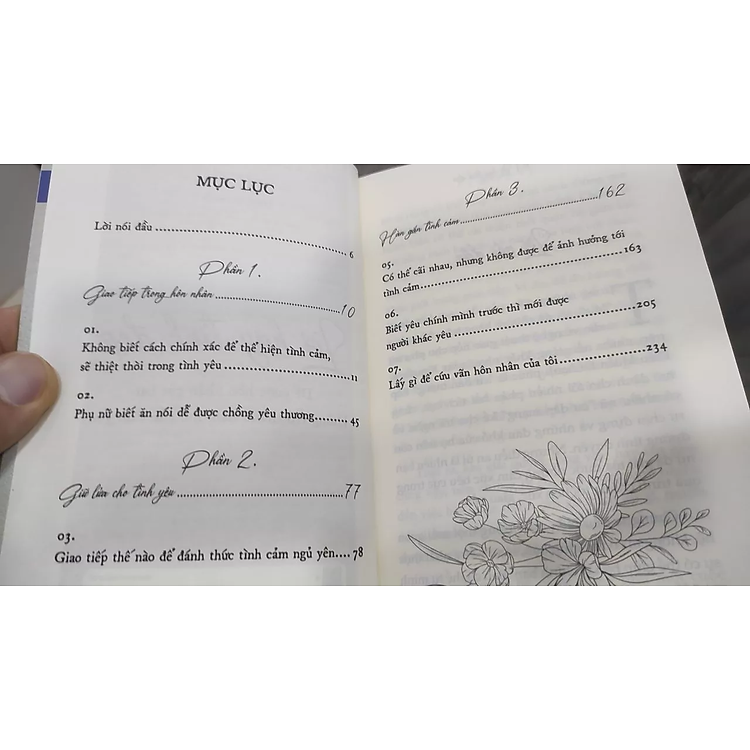 MỤC LỤC
Lời nói đầu 6
Phần 1.
Giao tiếp trong hôn nhân 10
01.
Không biết cách chính xác để thể hiện tình cảm,
sẽ thiệt thòi trong tình yêu 11
02.
Phụ nữ biết ăn nói dễ được chồng yêu thương 45
Phần 2.
Giữ lửa cho tình yêu 77
03.
Giao tiếp thế nào để đánh thức tình cảm ngủ yên.... 78
Phần 3.
Hàn gắn tình cảm 162
05.
Có thể cãi nhau, nhưng không được để ảnh hưởng tới
tình cảm 163
06.
Biết yêu chính mình trước thì mới được
người khác yêu 205
07.
Lấy gì để cứu vãn hôn nhân của tôi 234